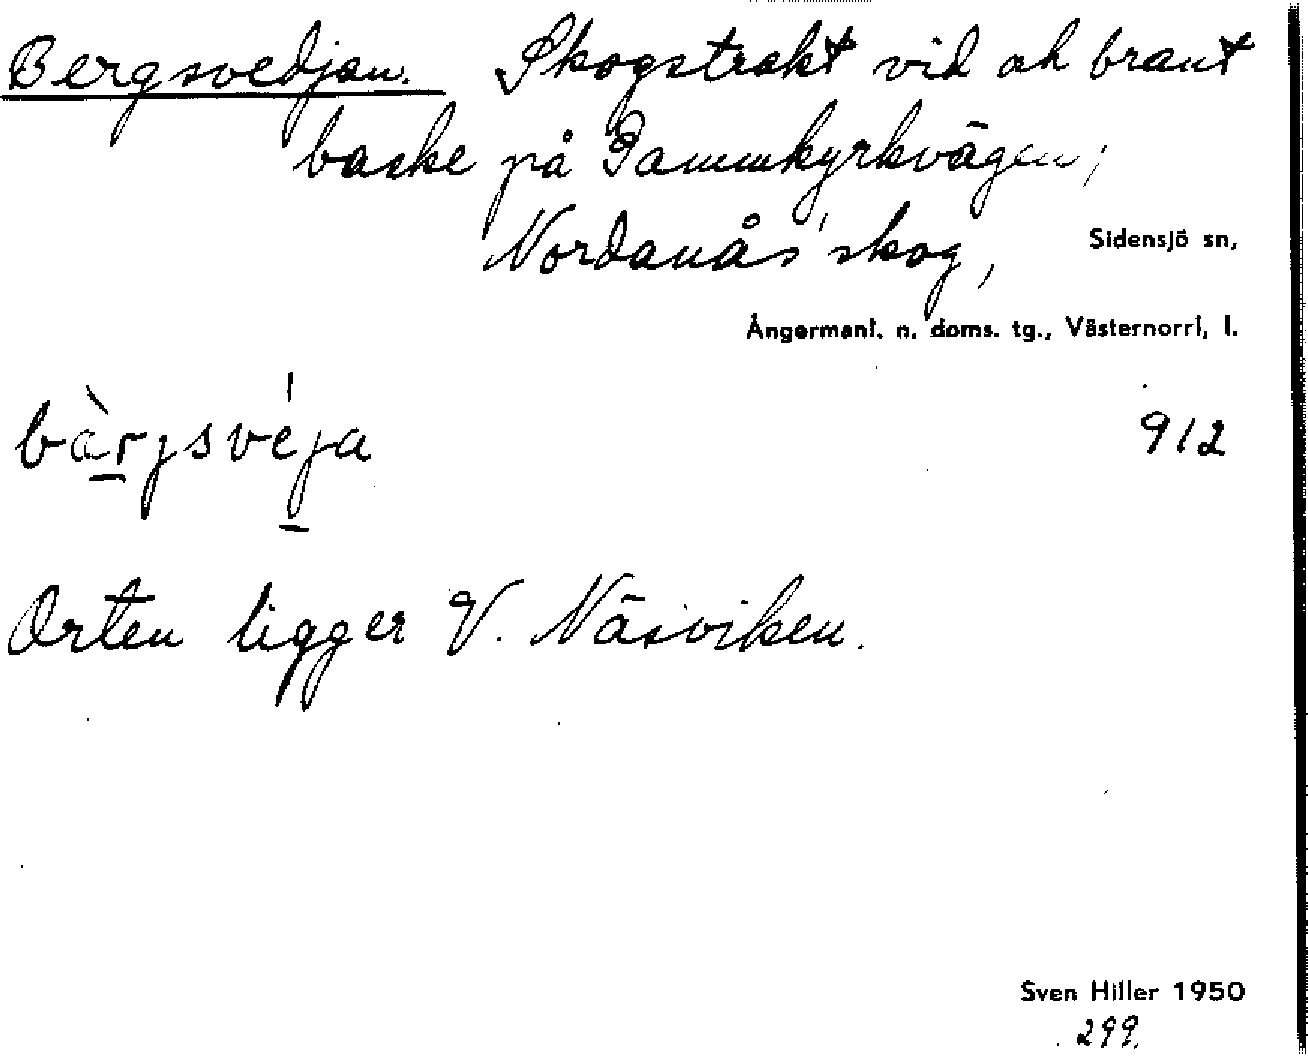 Bergsvedjan. Skogstrakt vid och brant
backe på Gammkyrkvägen,
Nordanås' skog, Sidensjö sn,
Ångermanl. n. doms. tg., Västernorrl. l.
bàrjsvéja 912
Orten ligger V. Näsviken.
Sven Hiller 1950
299.